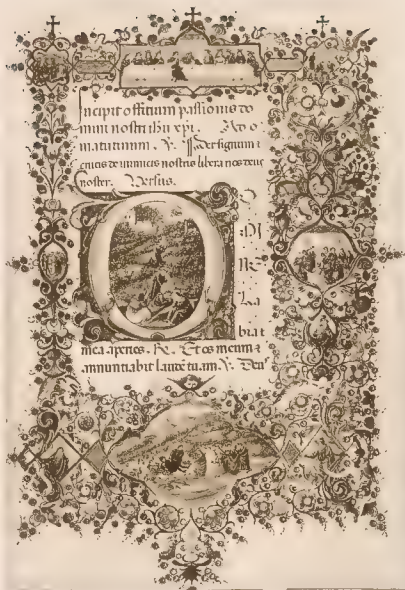 Incipit offitium passionis do
mini nostri ihu xpi. Ad
matutinum. V. Per signum
crucis de inimicis nostris libera nos deus
noster. Versus.
D
O
M
NE
La
bra
mea aperies. R. Et os meum
annuntiabit laudē tuam. V. Deus